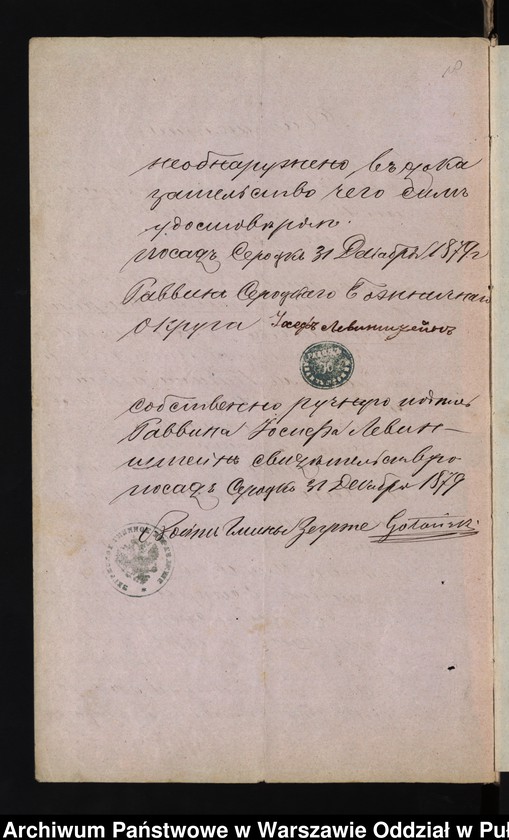 необнаружено, въ дока
зательство чего симъ
удостовѣряю.
посадъ Сероцкъ 31 Декабря 1879 г
Раввинъ Сероцкаго Божничнаго
Округа Іосфъ Левинштейнъ
собственно ручную подпись
Раввина Іосифа Левин-
штейнъ свидѣтельствую
посадъ Сероцкъ 31 Декабря 1879
Войтъ Гмины Зегрже
Archiwum Państwowe w Warszawie Oddział w Puł